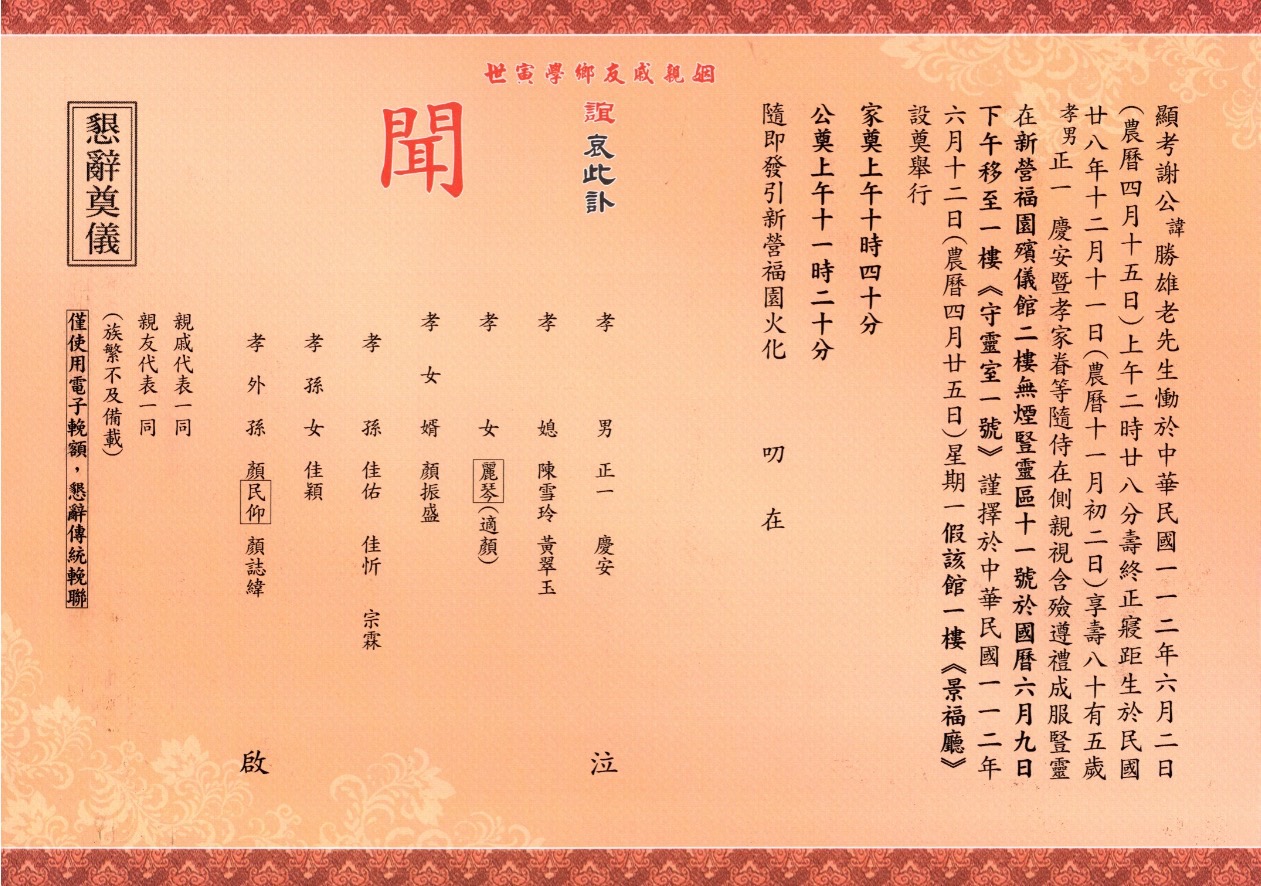 顯考謝公諱勝雄老先生慟於中華民國一一二年六月二日
(農曆四月十五日)上午二時廿八分壽終正寢距生於民國
廿八年十二月十一日(農曆十一月初二日)享壽八十有五歲
孝男正一 慶安暨孝家眷等隨侍在側親視含殮遵禮成服豎靈
在新營福園殯儀館二樓無煙豎靈區十一號於國曆六月九日
下午移至一樓《守靈室一號》謹擇於中華民國一一二年
六月十二日(農曆四月廿五日)星期一假該館一樓《景福廳》
設奠舉行
家奠上午十時四十分
公奠上午十一時二十分
隨即發引新營福園火化 叨在
姻親戚友鄉學寅世
誼哀此訃
聞
孝男 正一 慶安 泣
孝媳 陳雪玲 黃翠玉
孝女 麗琴(適顏)
孝女婿 顏振盛
孝孫 佳佑 佳忻 宗霖
孝孫女 佳穎
孝外孫 顏民仰 顏誌緯 啟
親戚代表一同
親友代表一同
(族繁不及備載)
懇辭奠儀
僅使用電子輓額，懇辭傳統輓聯